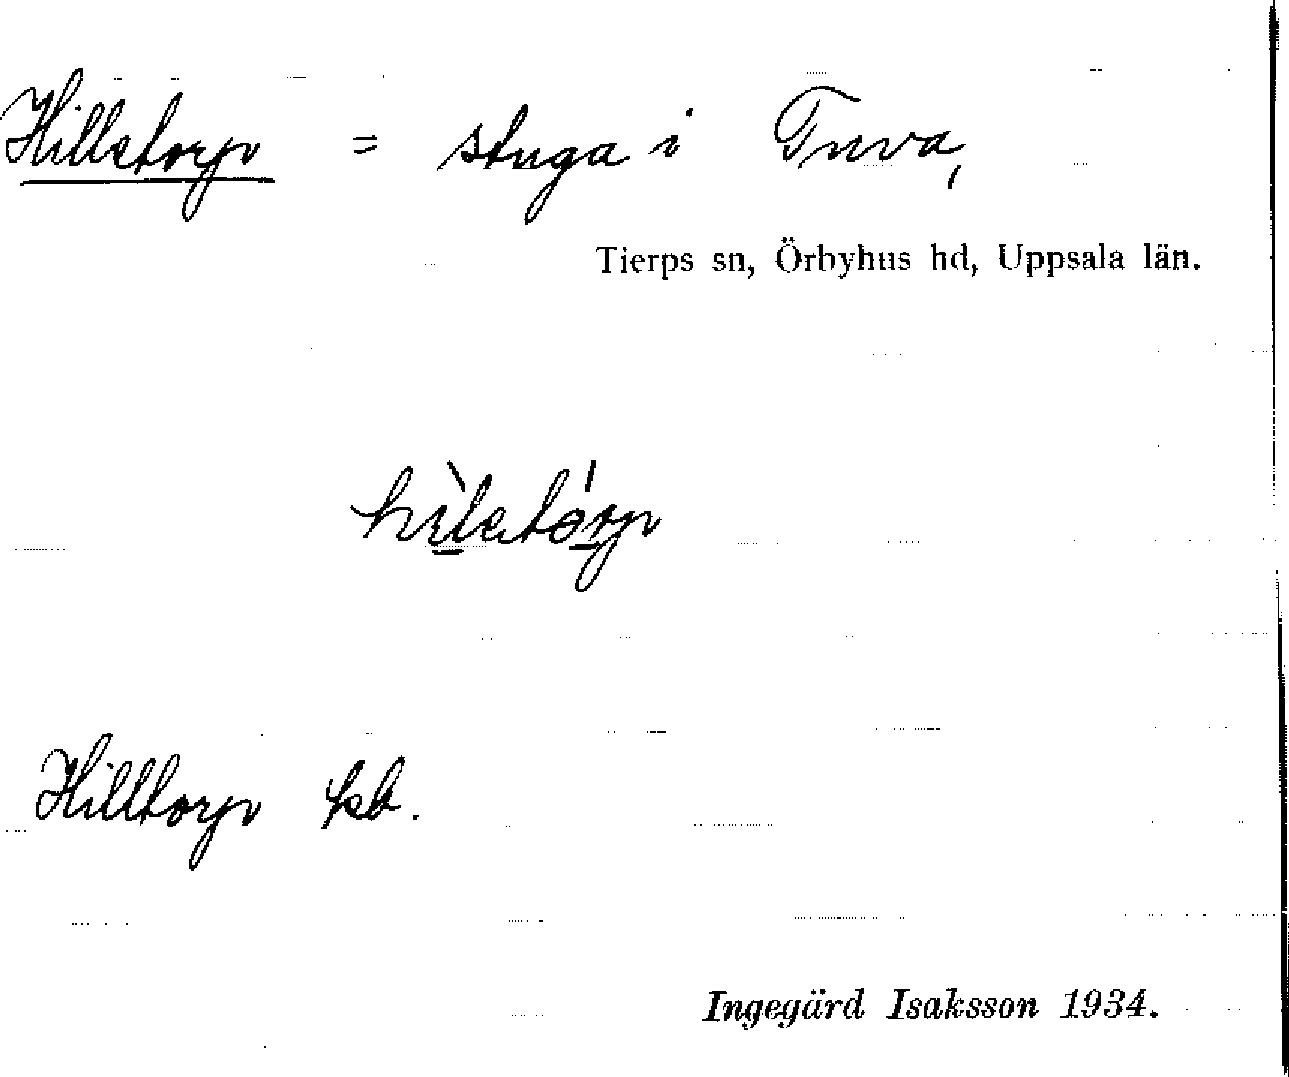 Hilletorp = stuga i Tuva,
Tierps sn, Örbyhus hd, Uppsala län.
hìletórp
Hilltorp ksb.
Ingegärd Isaksson 1934.